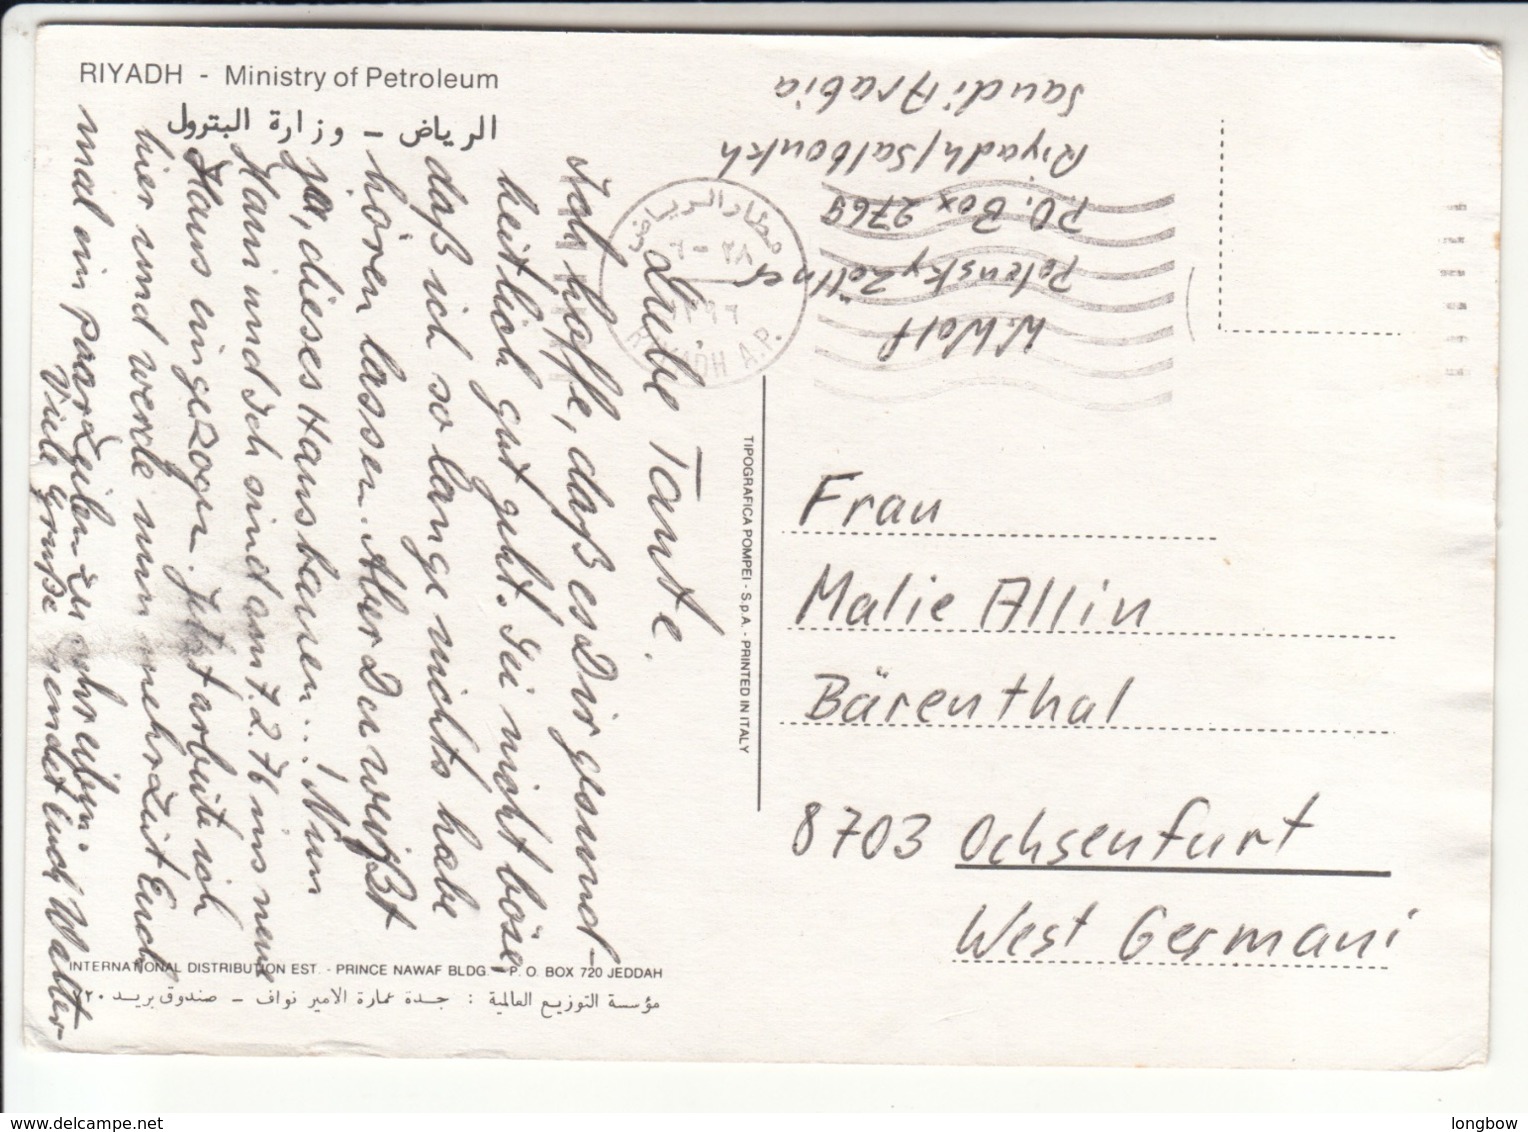 RIYADH - Ministry of Petroleum
الرياض - وزارة البترول
Liebe Tante.
Ich hoffe, daß es Dir gesund-
heitlich gut geht. Sei nicht böse,
daß ich so lange nichts habe
hören lassen. Aber Du weißt
ja, dieses Haus bauen...! Nun
Hanni und Ich sind am 7.2.76 ins neue
Haus eingezogen. Jetzt arbeite ich
hier und werde nun mehr Zeit Euch
mal ein paar Zeilen zu schreiben
Viele Grüße sendet Euch Walter
W. Wolf
Polensky Zöllner
P.O. Box 2769
Riyadh/Salboukh
Saudi Arabia
مطار الرياض
٢٨ - ٦
١٣٩٦
RIYADH A.P.
TIPOGRAFICA POMPEI - S.p.A. - PRINTED IN ITALY
Frau
Malie Allin
Bärenthal
8703 Ochsenfurt
West Germani
INTERNATIONAL DISTRIBUTION EST. - PRINCE NAWAF BLDG. - P. O. BOX 720 JEDDAH
مؤسسة التوزيع العالمية : جدة عمارة الامير نواف - صندوق بريد ٧٢٠
delcampe.net
longbow